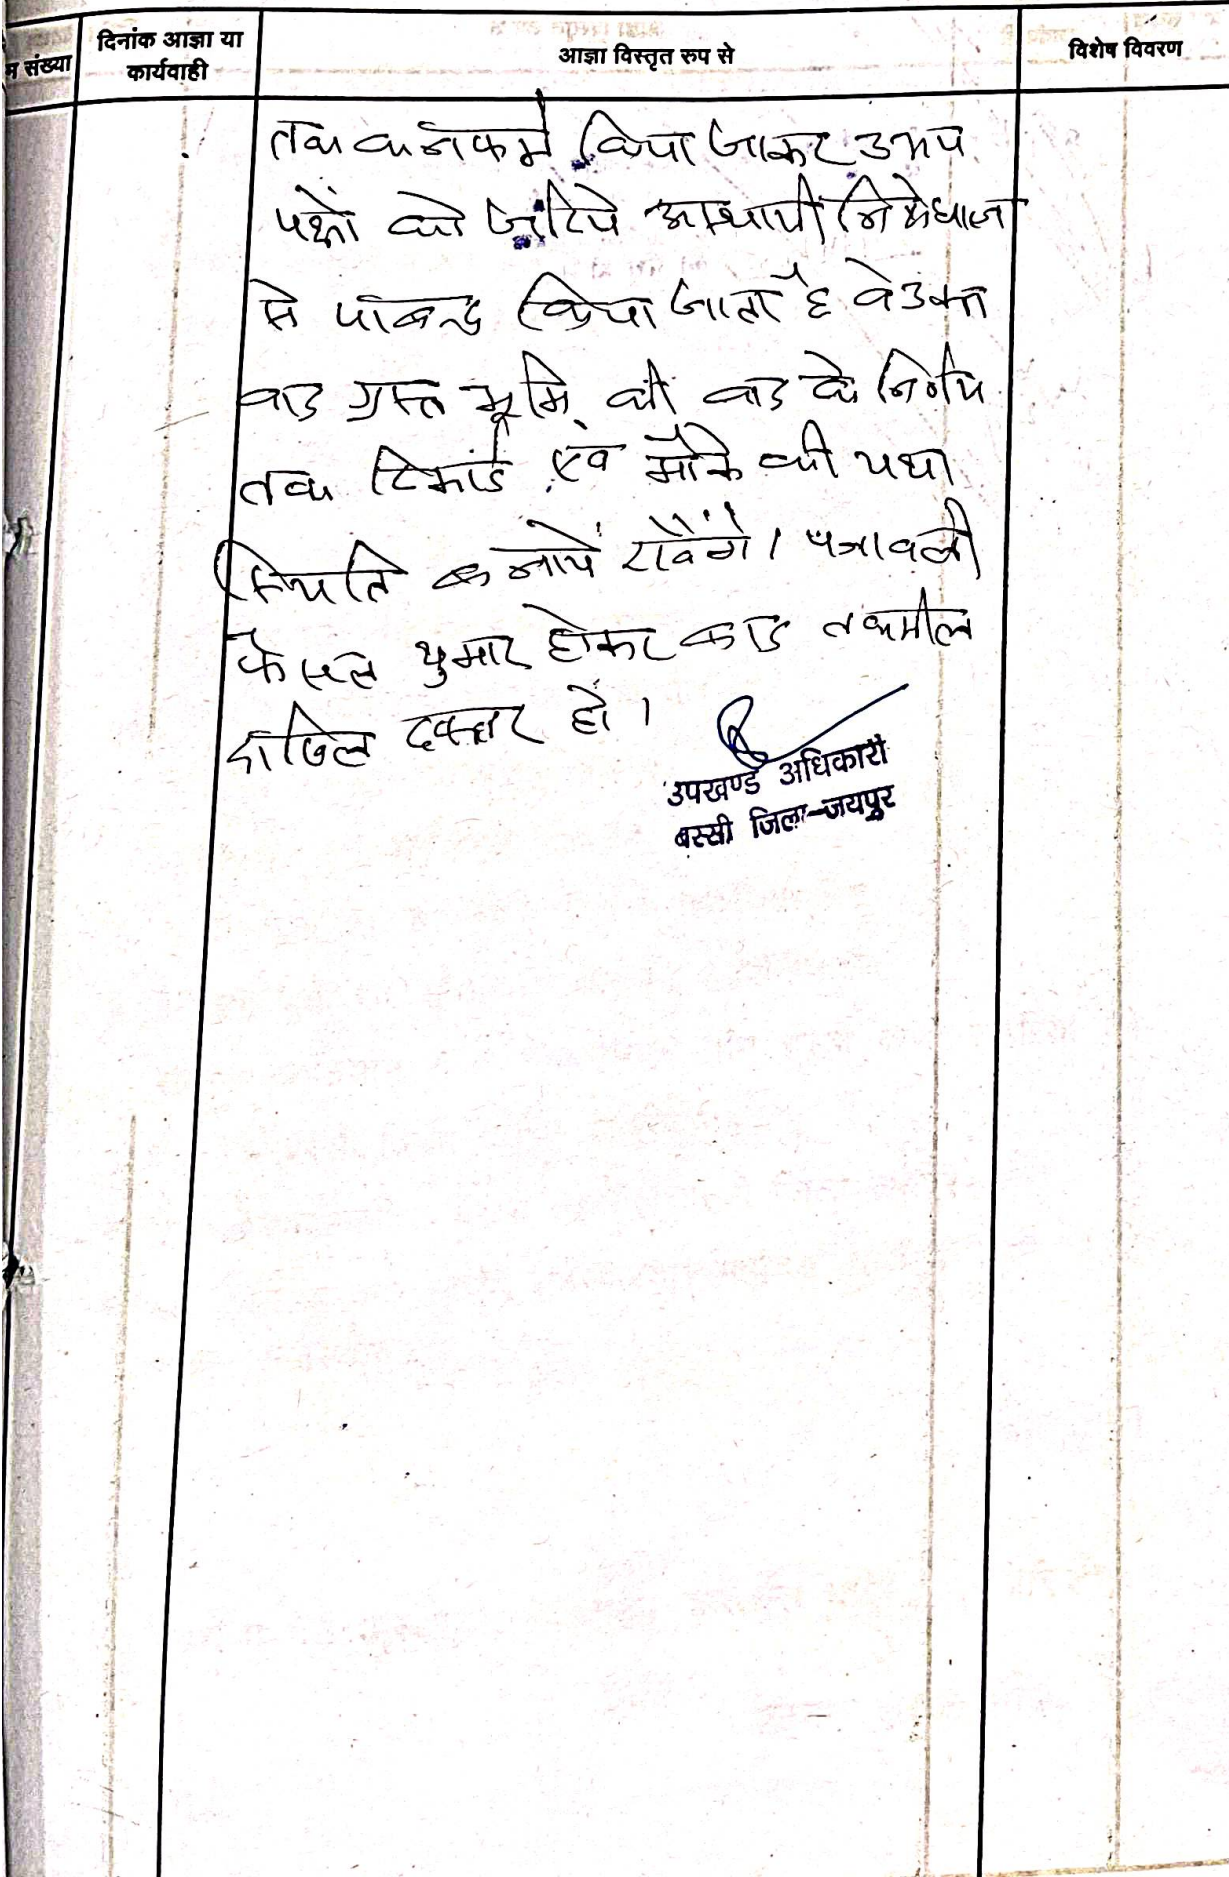 म संख्या
दिनांक आज्ञा या
कार्यवाही
आज्ञा विस्तृत रुप से
विशेष विवरण
तक कनफर्म किया जाकर उभय
पक्षों को जरिये अस्थायी निषेधाज्ञा
से पाबन्द किया जाता है वे उक्त
वाद ग्रस्त भूमि की वाद के निर्णय
तक रिकार्ड एवं मौके की यथा
स्थिति बनाये रखेंगे। पत्रावली
फैसल शुमार होकर बाद तकमील
दाखिल दफ्तर हो।
उपखण्ड अधिकारी
बस्सी जिला-जयपुर